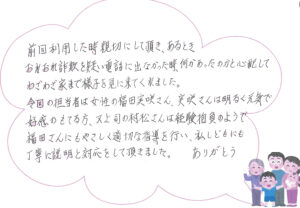 前回利用した時親切にして頂き、あるとき
おれおれ詐欺を疑い電話に出なかった時何かあったのかと心配して
わざわざ家まで様子を見に来てくれました。
今回の担当者は女性の稲田実咲さん、実咲さんは明るく元気で
好感のもてる方、又上司の村松さんは経験指負のようで
稲田さんにもやさしく適切な指導を行い、私しどもにも
丁寧に説明と対応をして頂きました。 ありがとう